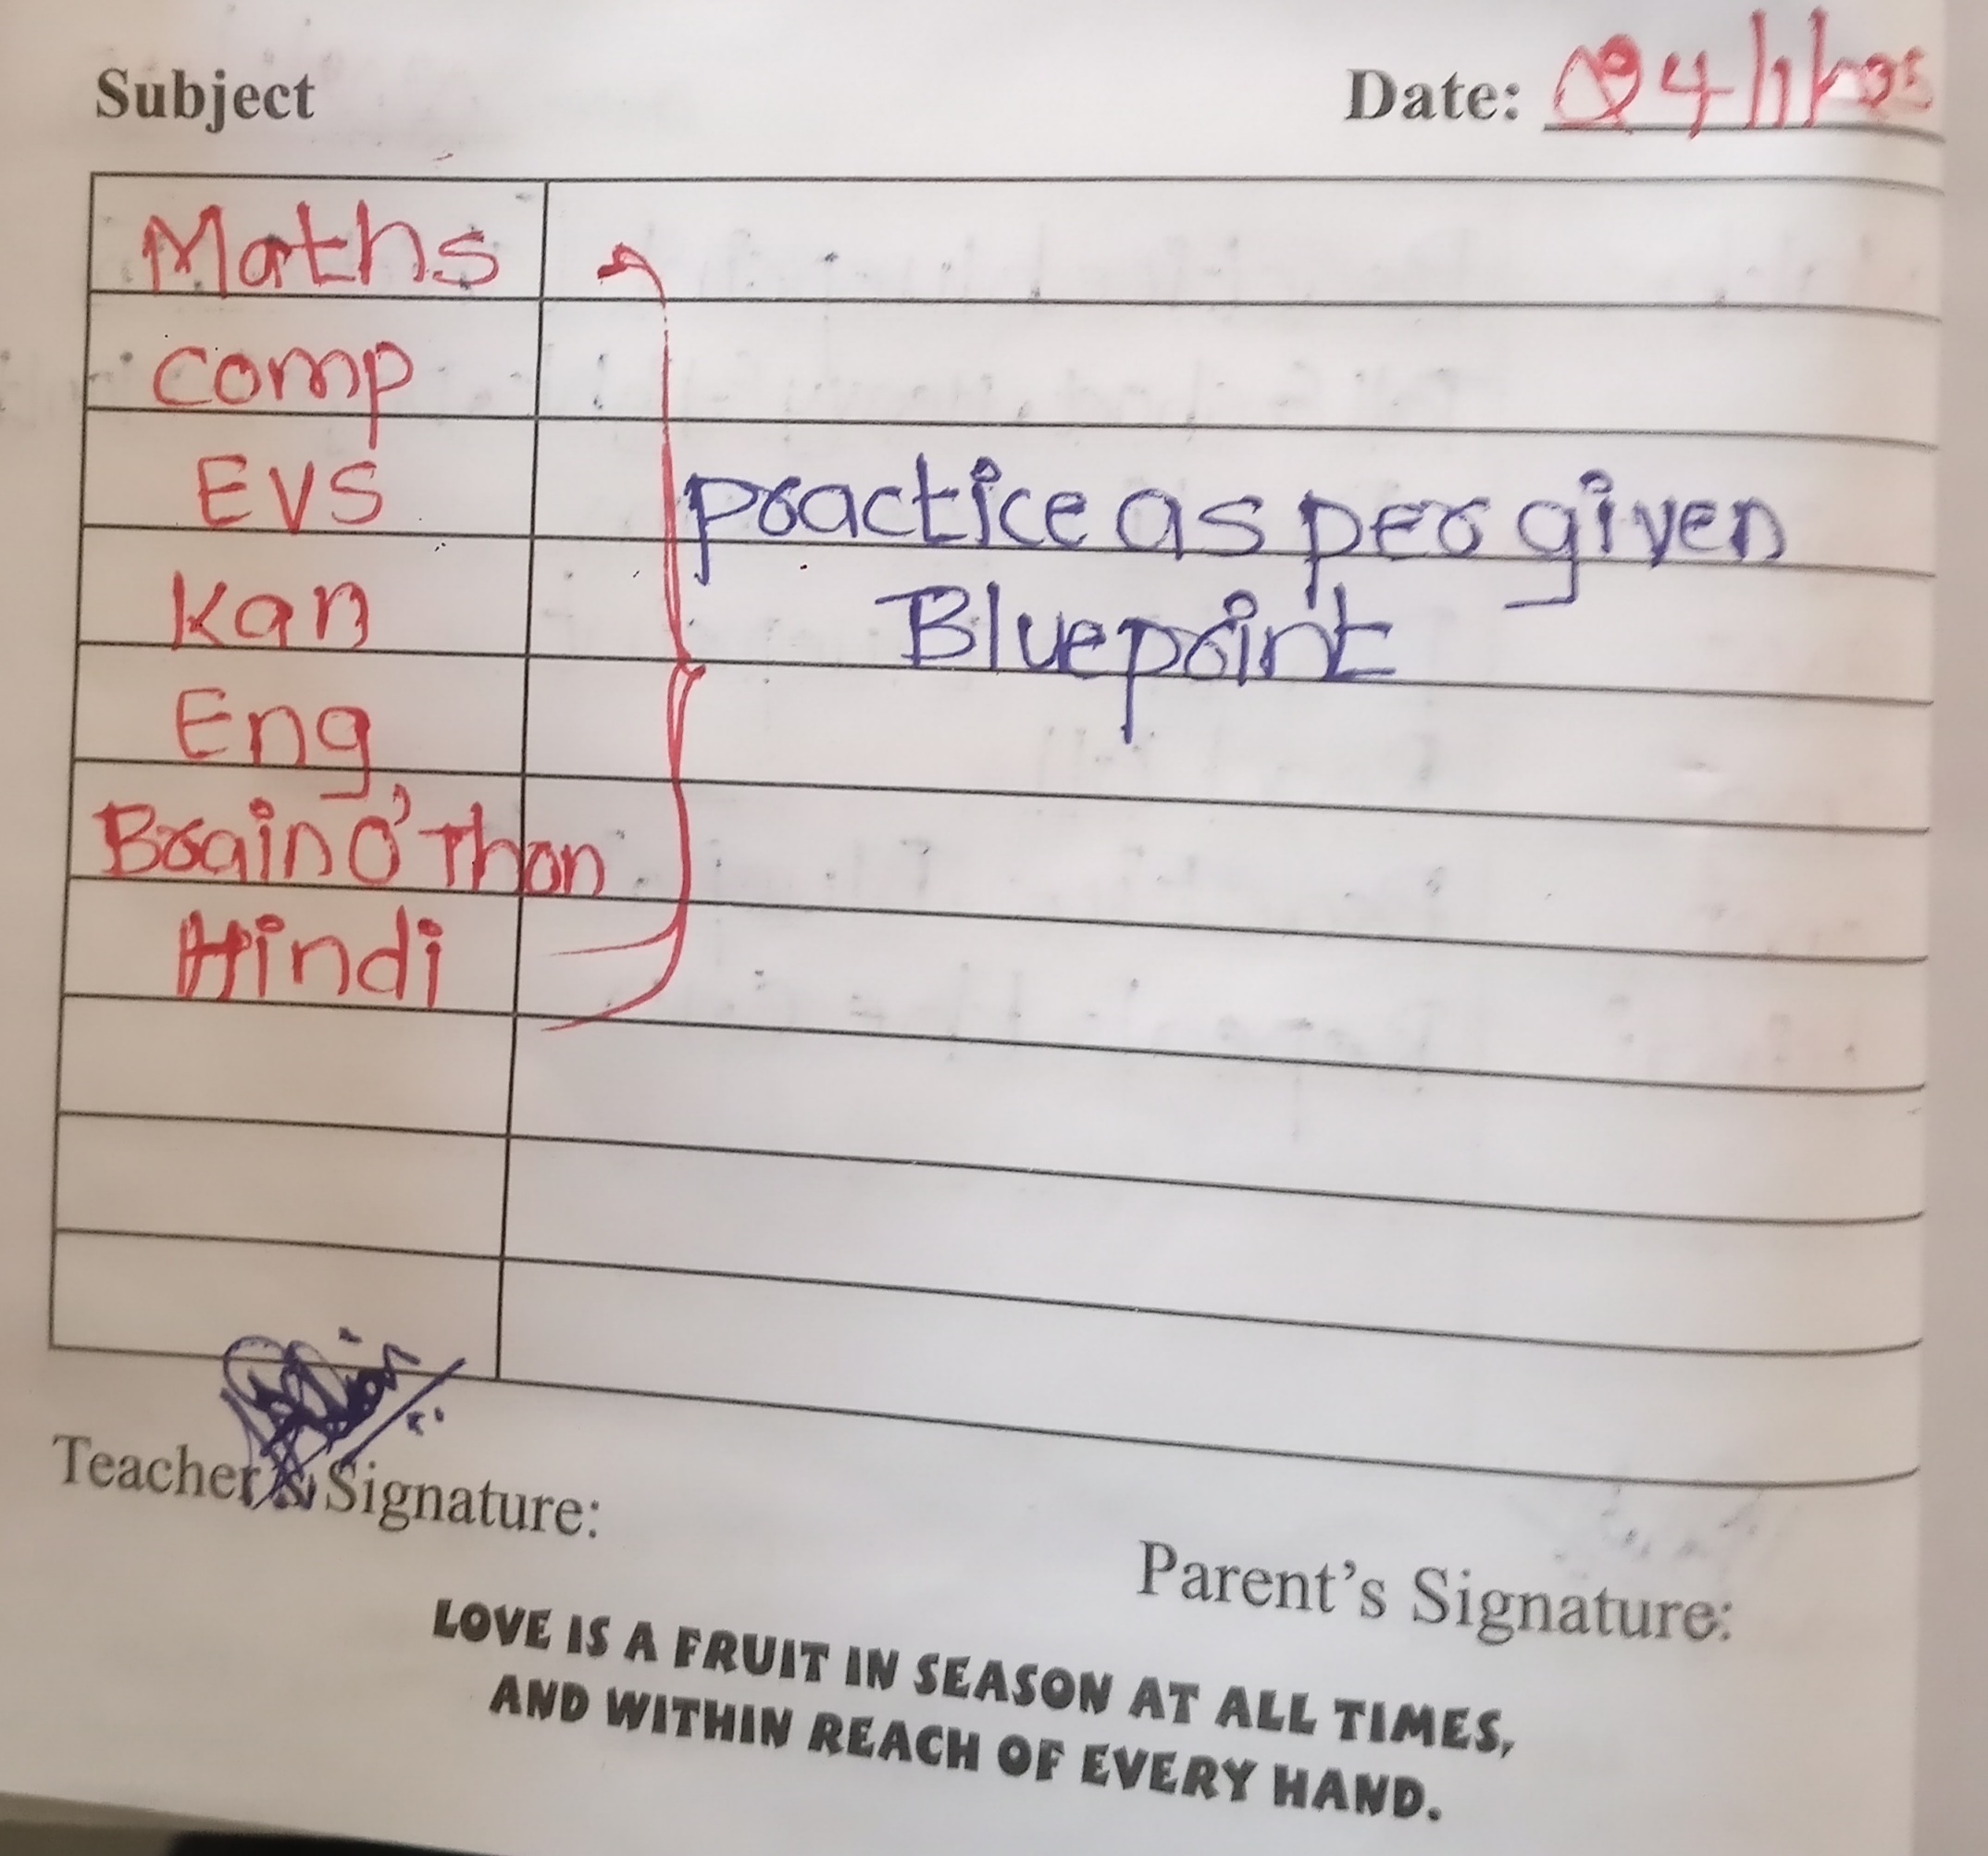 Subject
Date:
Maths
comp
EVS
Kan
Eng
Brain O' Thon
Hindi
practice as per given
Blueprint
Teacher's Signature:
Parent's Signature:
LOVE IS A FRUIT IN SEASON AT ALL TIMES,
AND WITHIN REACH OF EVERY HAND.